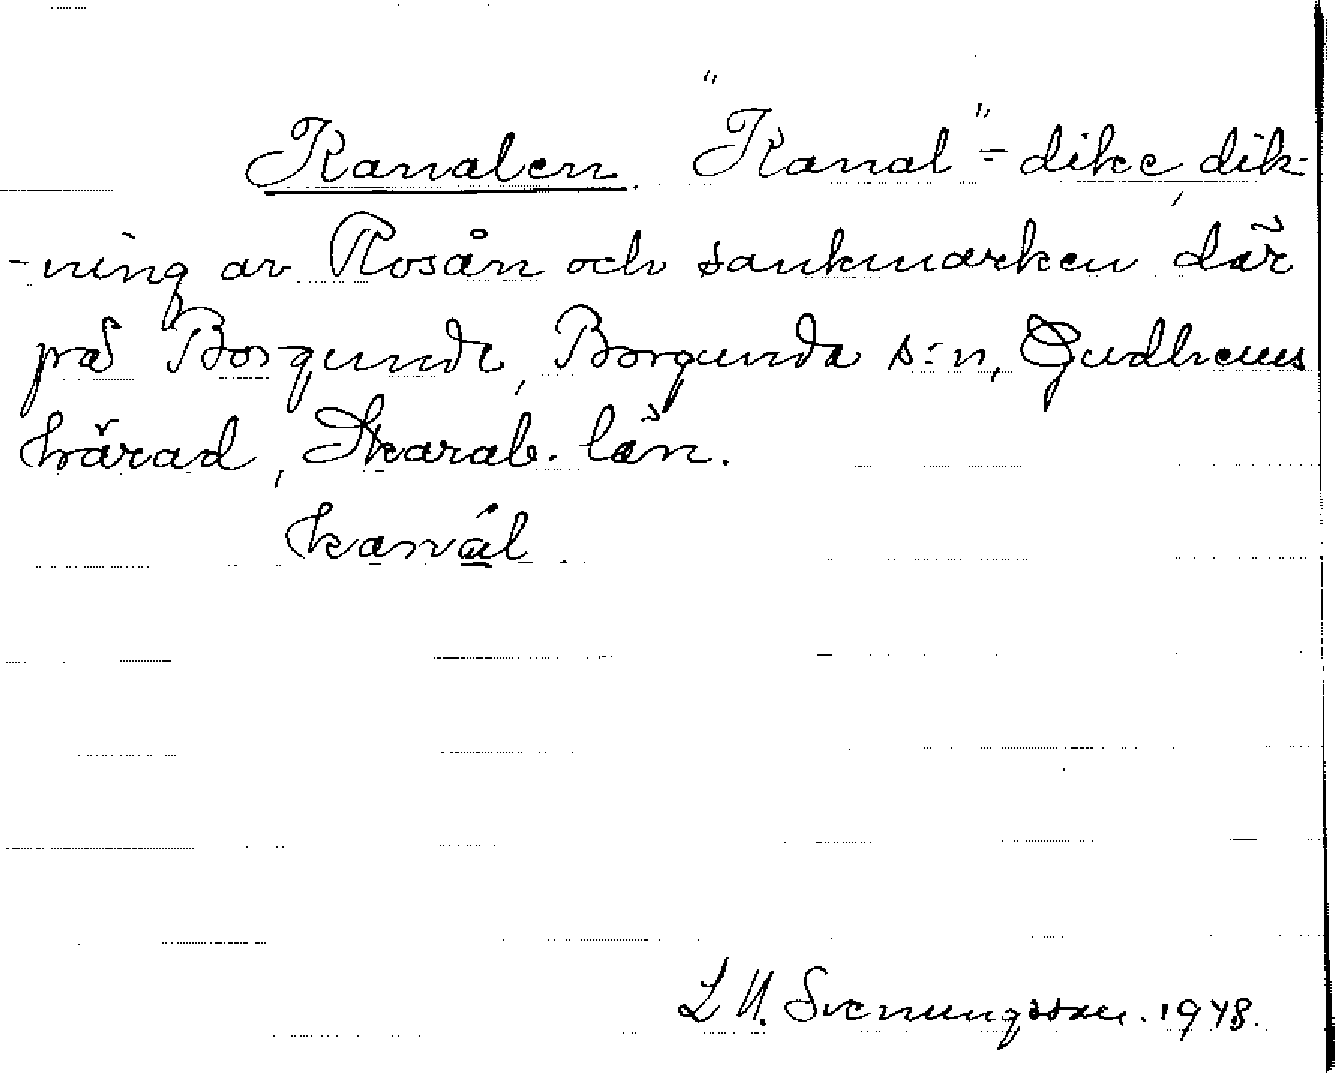 Kanalen. "Kanal"- dike, dik-
-ning av Rosån och sankmarken där
på Borgunda, Borgunda s:n, Gudhems
härad, Skarab. län.
kanál.
L M. Svenungsson. 1948.